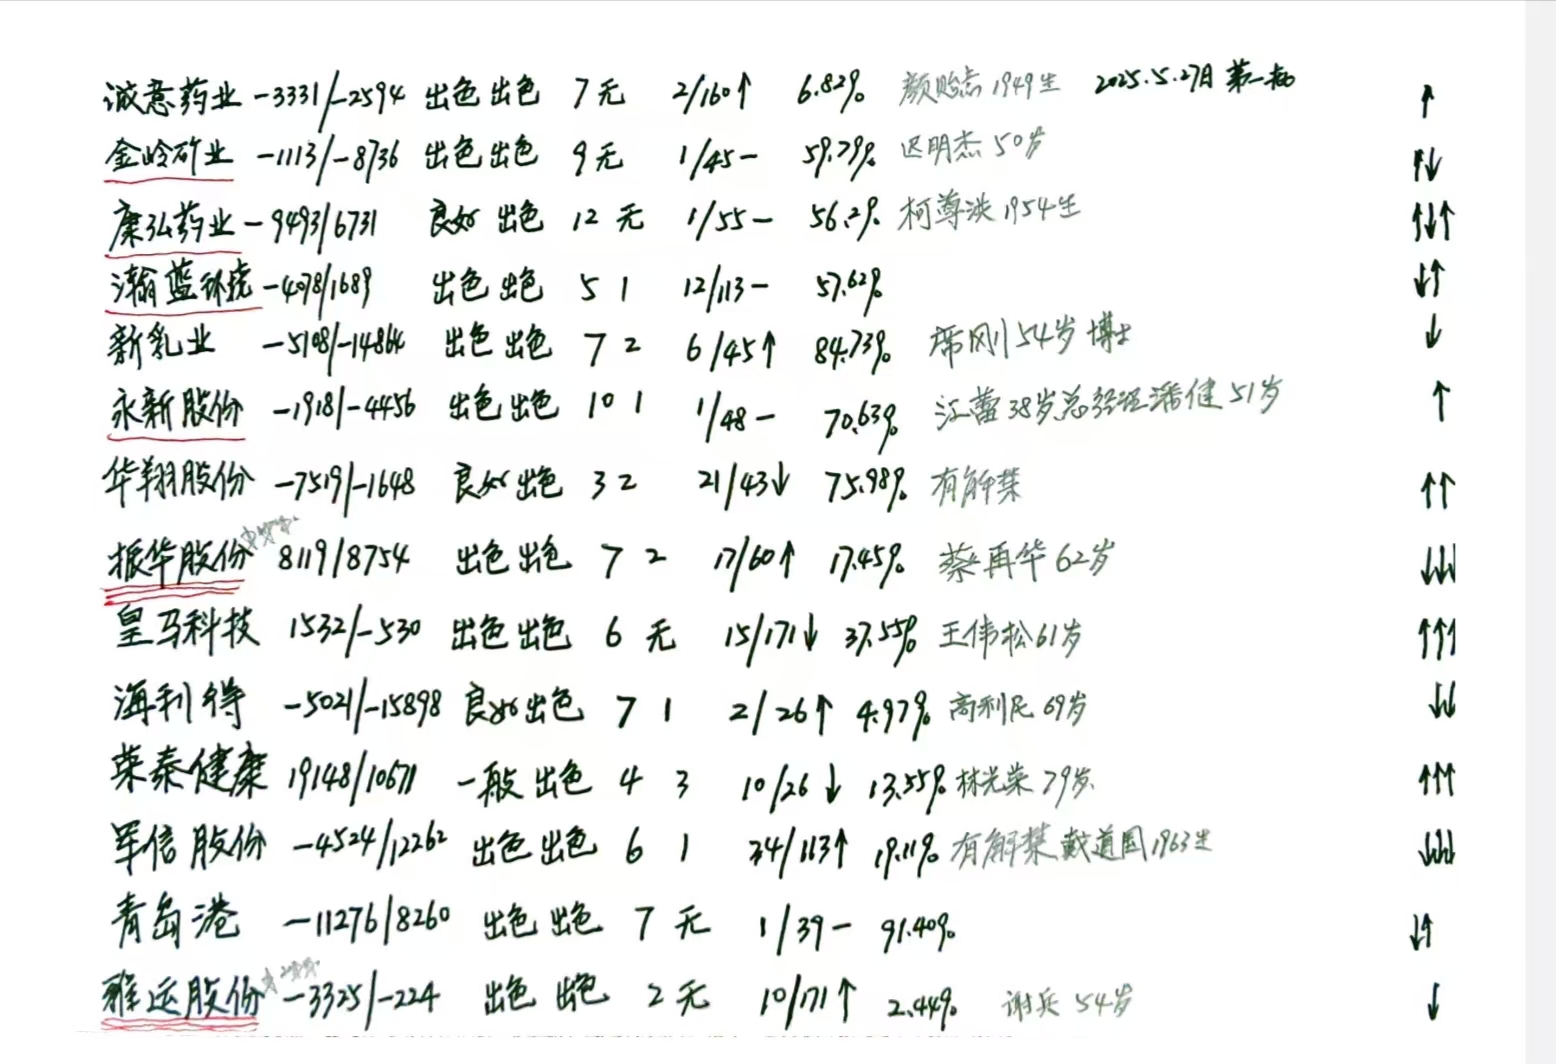 诚意药业 -3331/-2594 出色 出色 7 无 2/160↑ 6.82% 颜贻意 1949生 2025.5.27日 第一批 ↑
金岭矿业 -1113/-8736 出色 出色 9 无 1/45- 59.79% 迟明杰 50岁 ↑↓
康弘药业 -9493/6731 良好 出色 12 无 1/55- 56.2% 柯尊洪 1954生 ↑↓↑
瀚蓝环境 -4078/1689 出色 出色 5 1 12/113- 57.62% ↓↑
新乳业 -5108/-14864 出色 出色 7 2 6/45↑ 84.73% 席刚 54岁 博士 ↓
永新股份 -1918/-4456 出色 出色 10 1 1/48- 70.63% 江蕾 38岁总经理潘健 51岁 ↑
华翔股份 -7519/-1648 良好 出色 3 2 21/43↓ 75.98% 有解禁 ↑↑
振华股份 8119/8754 出色 出色 7 2 17/60↑ 17.45% 蔡再华 62岁 ↓↓↓
皇马科技 1532/-530 出色 出色 6 无 15/171↓ 37.55% 王伟松 61岁 ↑↑↑
海利得 -5021/-15898 良好 出色 7 1 2/26↑ 4.97% 高利民 69岁 ↓↓
荣泰健康 19148/10671 一般 出色 4 3 10/26↓ 13.55% 林光荣 79岁 ↑↑↑
军信股份 -4524/12262 出色 出色 6 1 34/113↑ 19.11% 有解禁 戴道国 1963生 ↓↓↓
青岛港 -11276/8260 出色 出色 7 无 1/39- 91.40% ↓↑
雅运股份 -3325/-224 出色 出色 2 无 10/171↑ 2.44% 谢兵 54岁 ↓